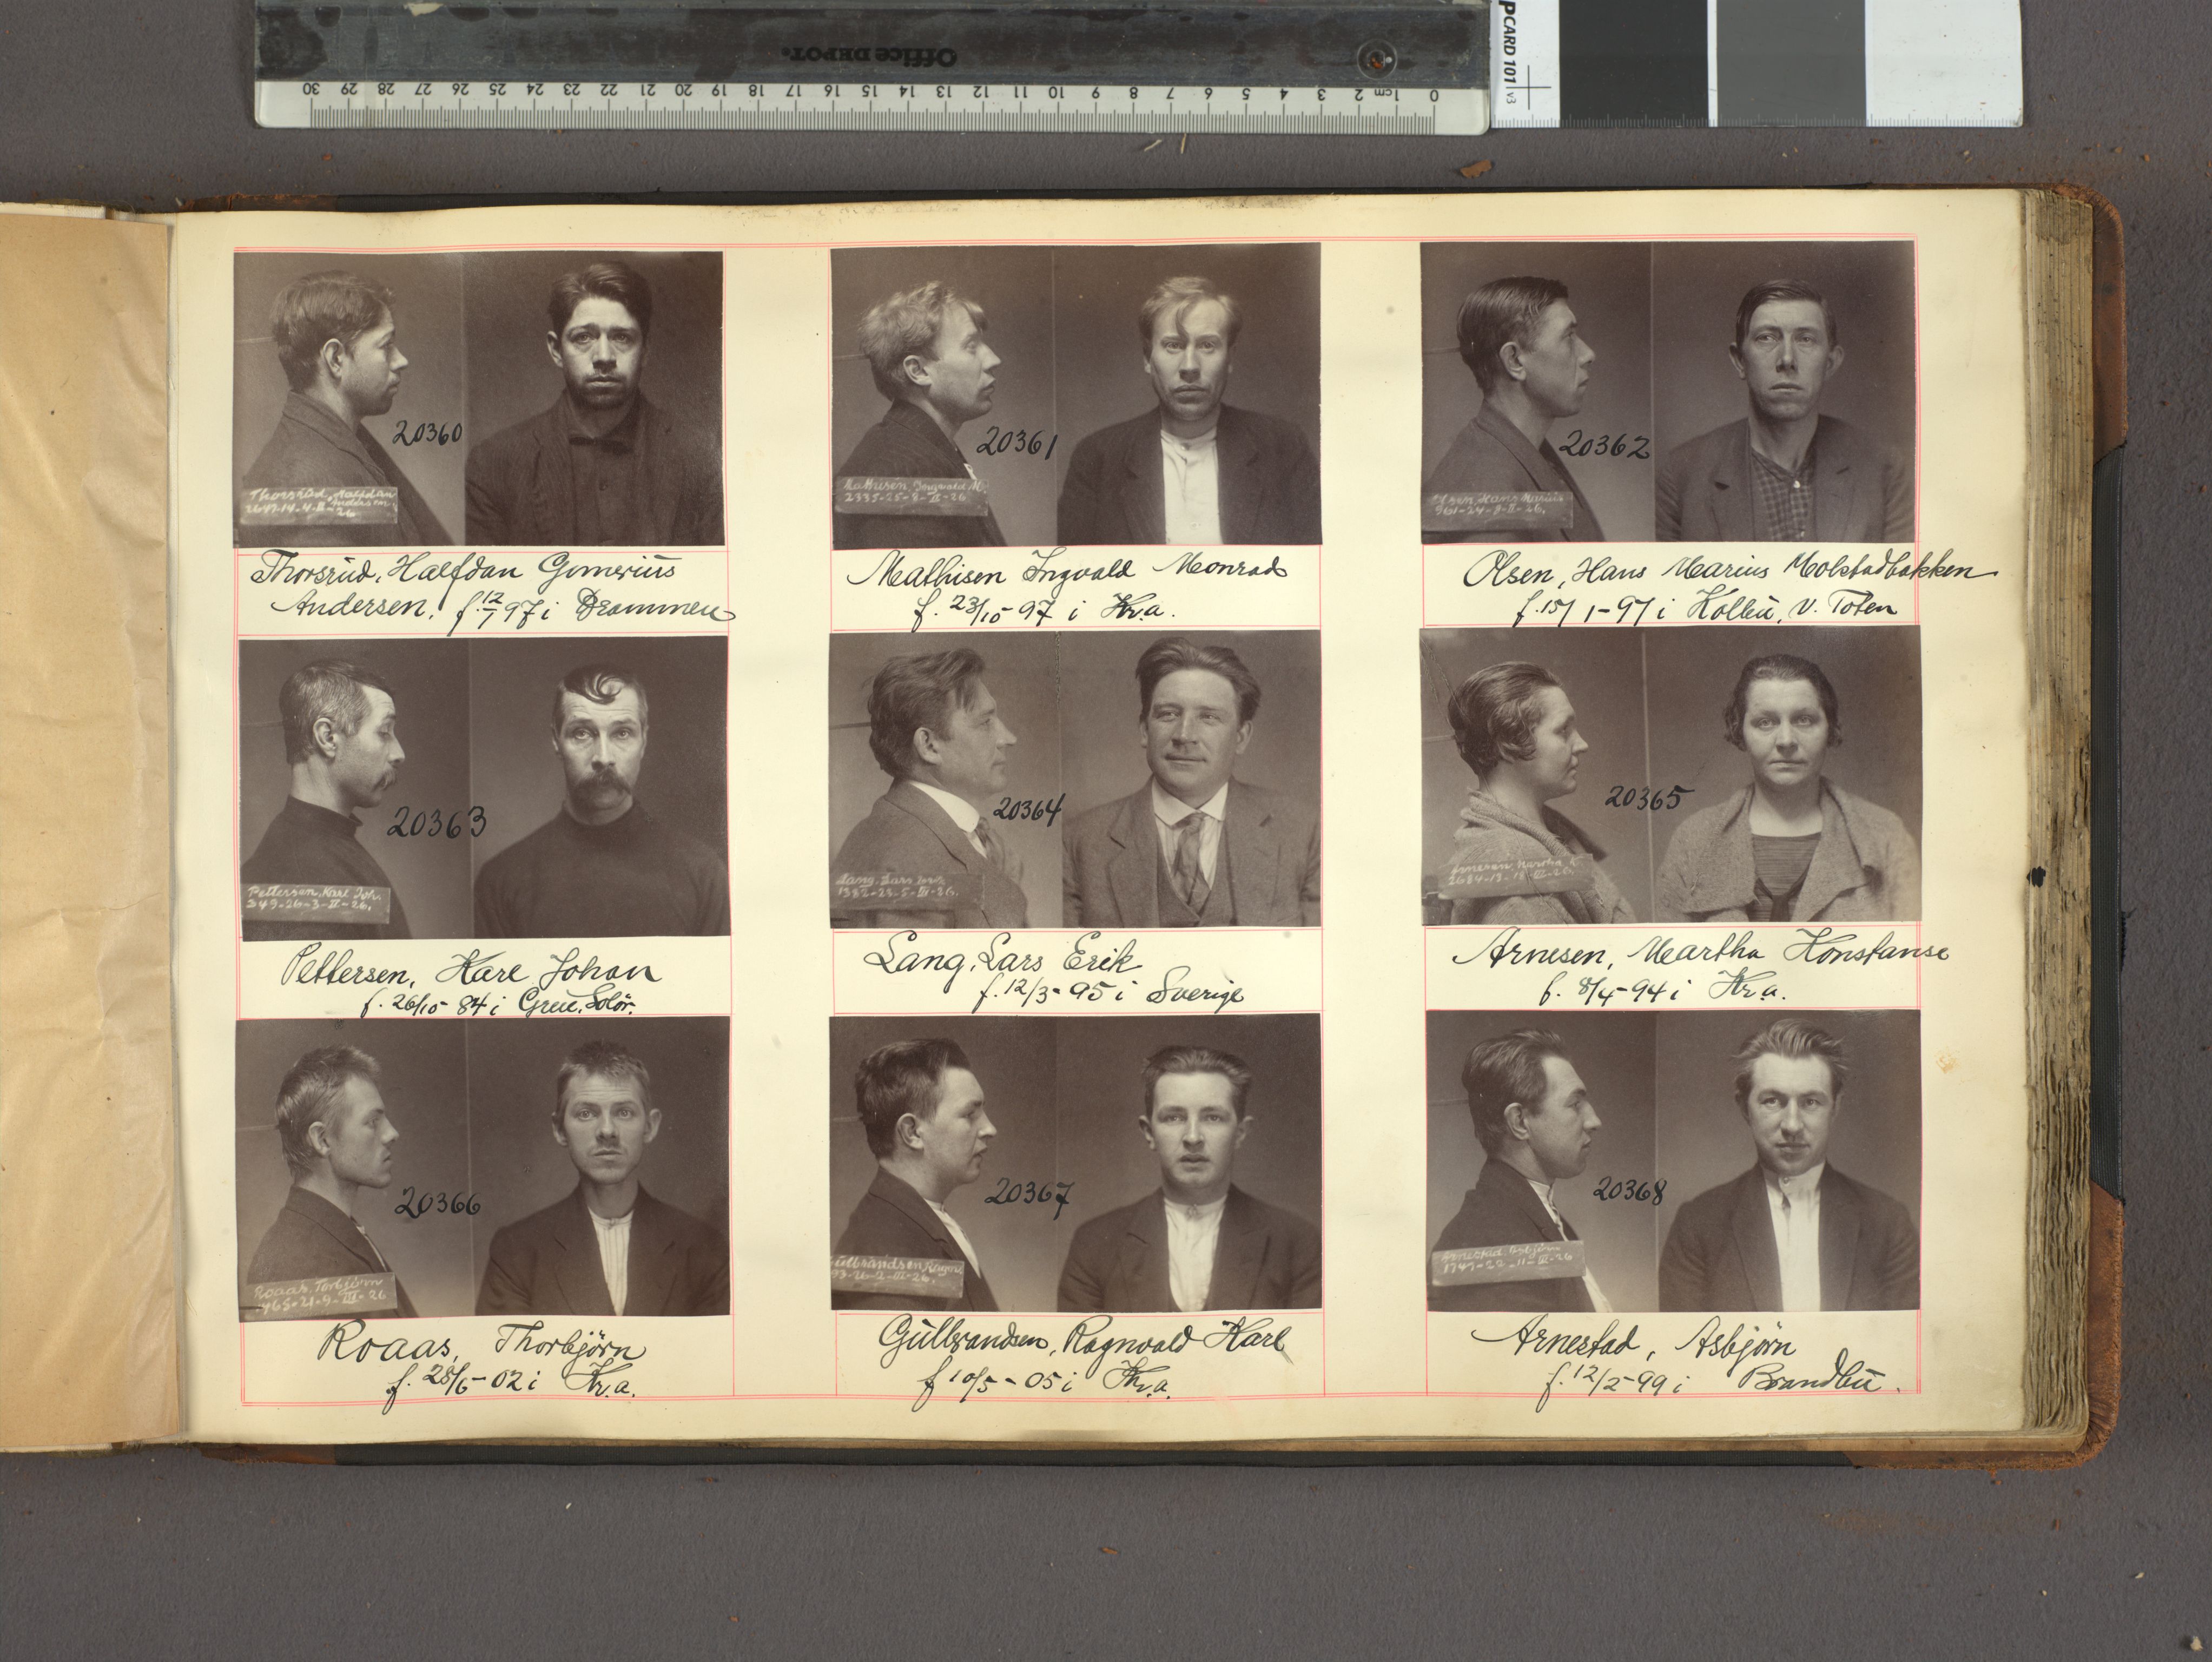 Office DEPOT.
30 29 28 27 26 25 24 23 22 21 20 19 18 17 16 15 14 13 12 11 10 9 8 7 6 5 4 3 2 cm 1 0
PCARD 101 v3
20360
Thorsrud, Halfdan
Andersen
2647-14-4-II-26
Thorsrud, Halfdan Gomerius
Andersen. f. 12/7 97 i Drammen
20361
Mathisen, Ingvald M.
2335-25-8-II-26
Mathisen Ingvald Monrad
f. 23/10-97 i Kr.a.
20362
Olsen, Hans Marius
961-24-9-II-26.
Olsen, Hans Marius Molstadbakken
f. 15/1-97 i Kolbu, V. Toten
20363
Pettersen, Karl Joh.
349-26-3-II-26.
Pettersen, Karl Johan
f. 26/10-84 i Grue, Solör.
20364
Lang, Lars Erik
1382-23-5-III-26.
Lang, Lars Erik
f. 12/3-95 i Sverige
20365
Arnesen, Martha K.
2684-13-18-III-26.
Arnesen, Martha Konstanse
f. 8/4-94 i Kr.a.
20366
Roaas, Torbjörn
465-21-9-III-26
Roaas, Thorbjörn
f. 28/6-02 i Kr.a.
20367
Gulbrandsen, Ragnv.
93-26-2-III-26.
Gulbrandsen, Ragnvald Karl
f 10/5-05 i Kr.a.
20368
Arnestad, Asbjörn
1747-22-11-III-26
Arnestad, Asbjørn
f. 12/2-99 i Brandbu.